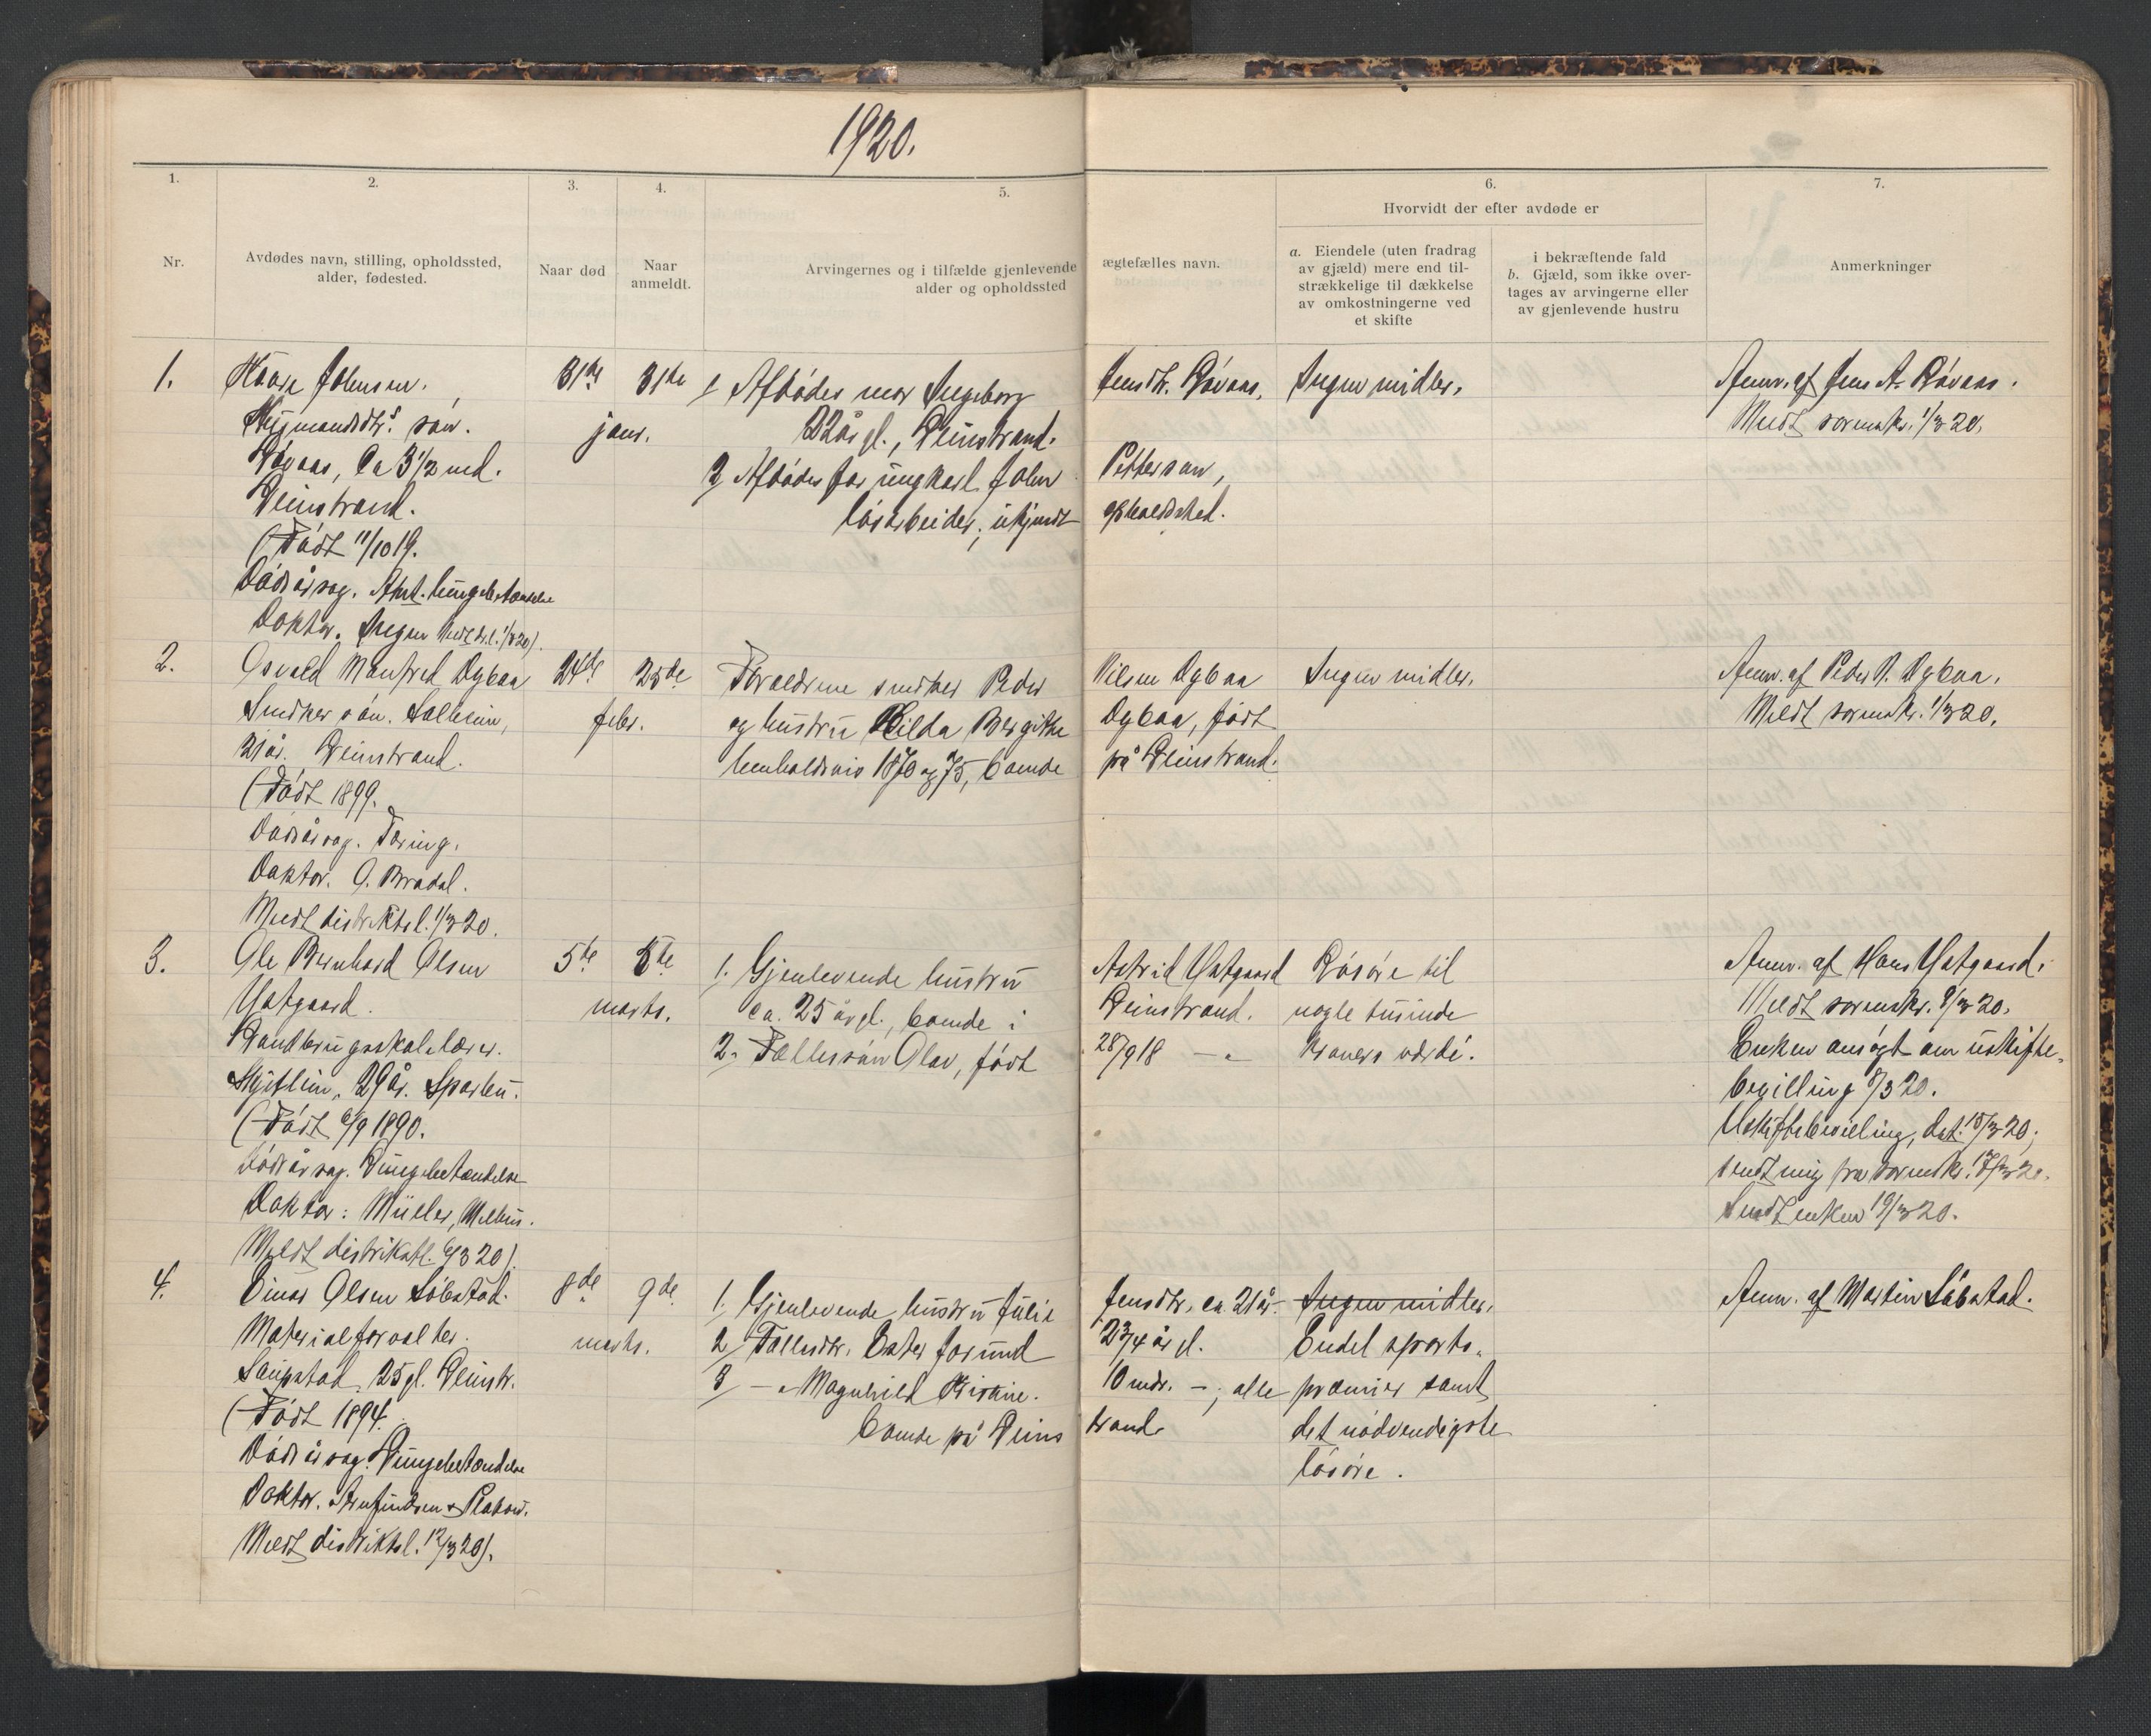 1920.
1.
2.
3.
4.
5.
6.
7.
Nr.
Avdødes navn, stilling, opholdssted,
alder, fødested.
Naar død
Naar
anmeldt.
Arvingernes og i tilfælde gjenlevende
alder og opholdssted
ægtefælles navn.
Hvorvidt der efter avdøde er
a. Eiendele (uten fradrag
av gjæld) mere end til-
strækkelige til dækkelse
av omkostningerne ved
et skifte
i bekræftende fald
b. Gjæld, som ikke over-
tages av arvingerne eller
av gjenlevende hustru
Anmerkninger
1.
Johnsen.
søn.
Ca 3 1/2 md.
(Født 11/10 19.
Dødsårsag. Akut. lungebetændelse
Doktor. Ingen
31te 31te
janr.
1/ Afdødes mor Ingeborg
22 år gl.,
2/ Afdødes far ungkarl John
løsarbeider, ukjendt
Jensdtr. Røvaas.
Pettersen,
opholdssted.
Ingen midler.
Anm. af Jens A. Røvaas.
Meldt sorenskr. 1/3 20.
2.
Osvald Manfred Dybaa
Snedker søn.
21 år.
(Født 1899.
Dødsårsag. Tæring.
Doktor. O. Bradal.
Meldt distriktsl. 1/3 20.
24de 25de
febr.
Forældrene snedker Peder
og hustru Hilda Bergitte
henholdsvis 1870 og 75, boende
Nilsen Dybaa
Dybaa, født
på
Ingen midler.
Anm. af Peder N. Dybaa.
Meldt sorenskr. 1/3 20.
3.
Ole Bernhard Olsen
29 år. Sparbu.
(Født 6/9 1890.
Dødsårsag. Lungebetændelse
Doktor: Müller, Melhus.
Meldt distriktsl. 6/3 20).
5te 8te
marts.
1. Gjenlevende hustru
ca. 25 år gl., boende i
2. Fællessøn Olav, født
Astrid
28/9 18 – "
Løsøre til
nogle tusinde
kroners værdi.
Anm. af Hans
Meldt sorenskr. 8/3 20.
Enken ansøgt om uskifte-
bevilling 8/3 20.
Uskiftebevilling, dat. 15/3 20,
sendt mig fra sorenskr. 17/3 20.
Sendt enken 19/3 20.
4.
Einar Olsen Løbstad.
Materialforvalter.
25 gl.
(Født 1894.
Dødsårsag. Lungebetændelse
Doktor.
Meldt distriktsl. 12/3 20).
8de 9de
marts.
1. Gjenlevende hustru Julie
2/ Fællesdtr. Ester Jorund
3/ – " Magnhild Kristine.
boende på
Jensdtr. ca. 21 år.
2 3/4 år gl.
10 mdr. –, alle
strand.
Ingen midler.
Endel sports-
præmier samt
det nødvendigste
løsøre.
Anm. af Martin Løbstad.